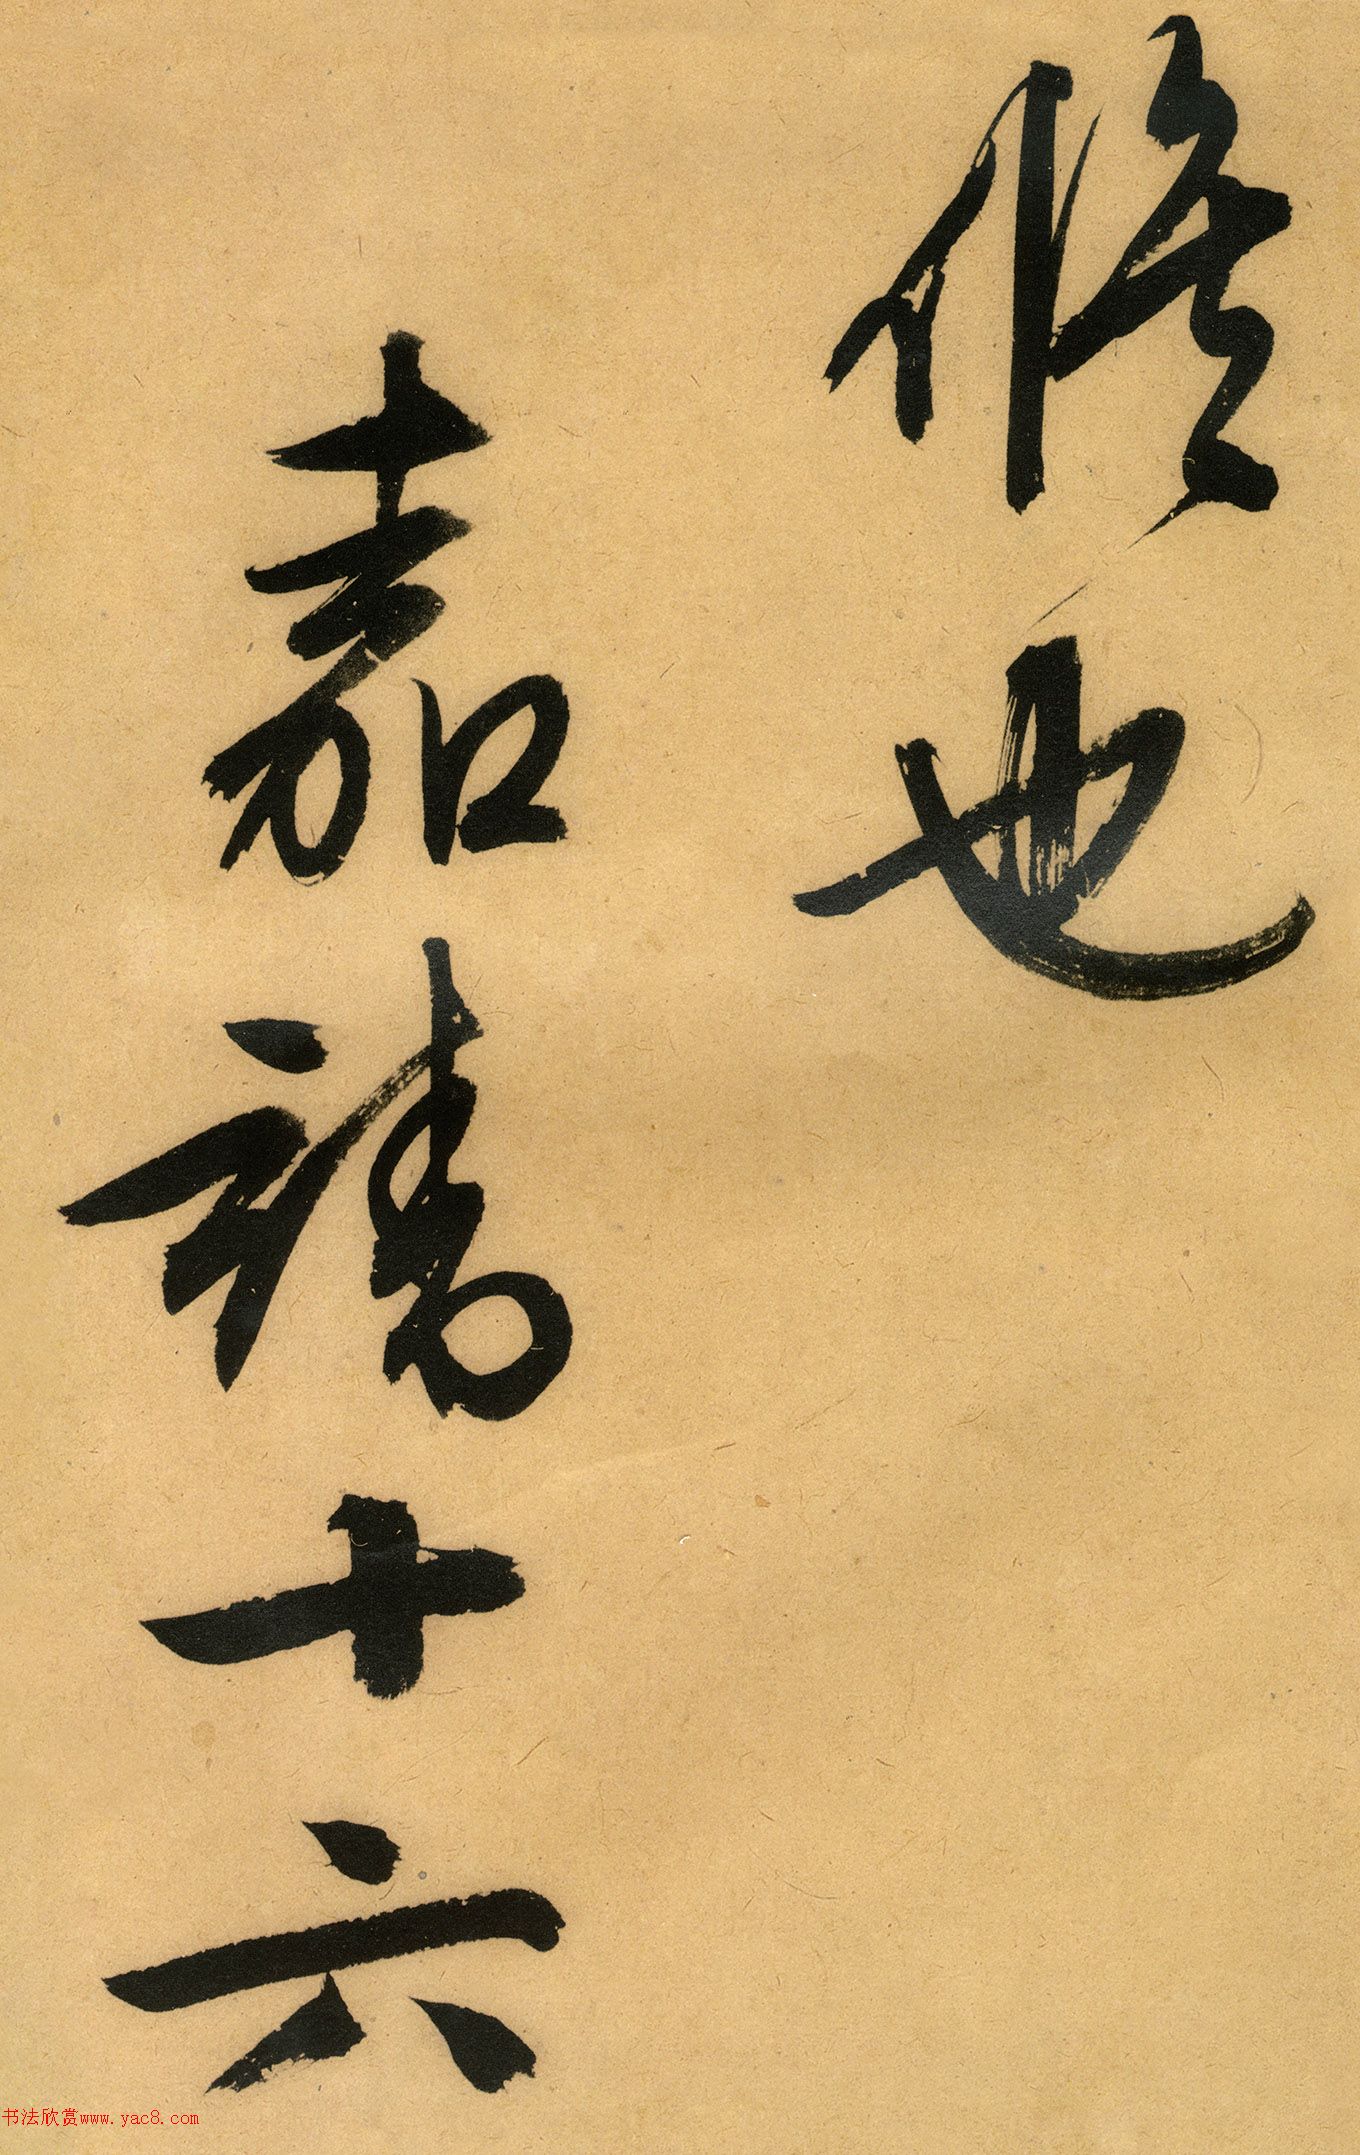 修也
嘉靖十六
书法欣赏www.yac8.com